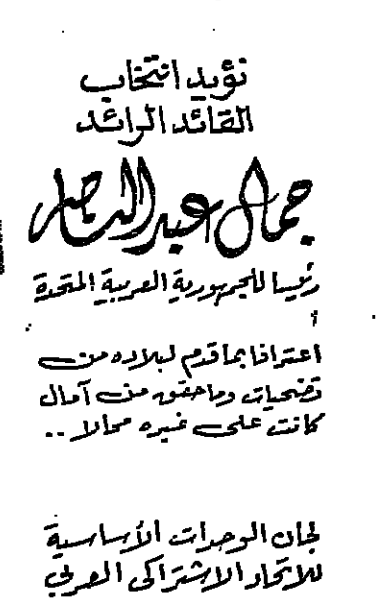 نؤيد انتخاب
القائد الرائد
جمال عبد الناصر
رئيسا للجمهورية العربية المتحدة
اعترافا بما قدم لبلاده من
تضحيات وما حقق من آمال
كانت على غيره محالا ..
لجان الوحدات الأساسية
للاتحاد الاشتراكى العربي